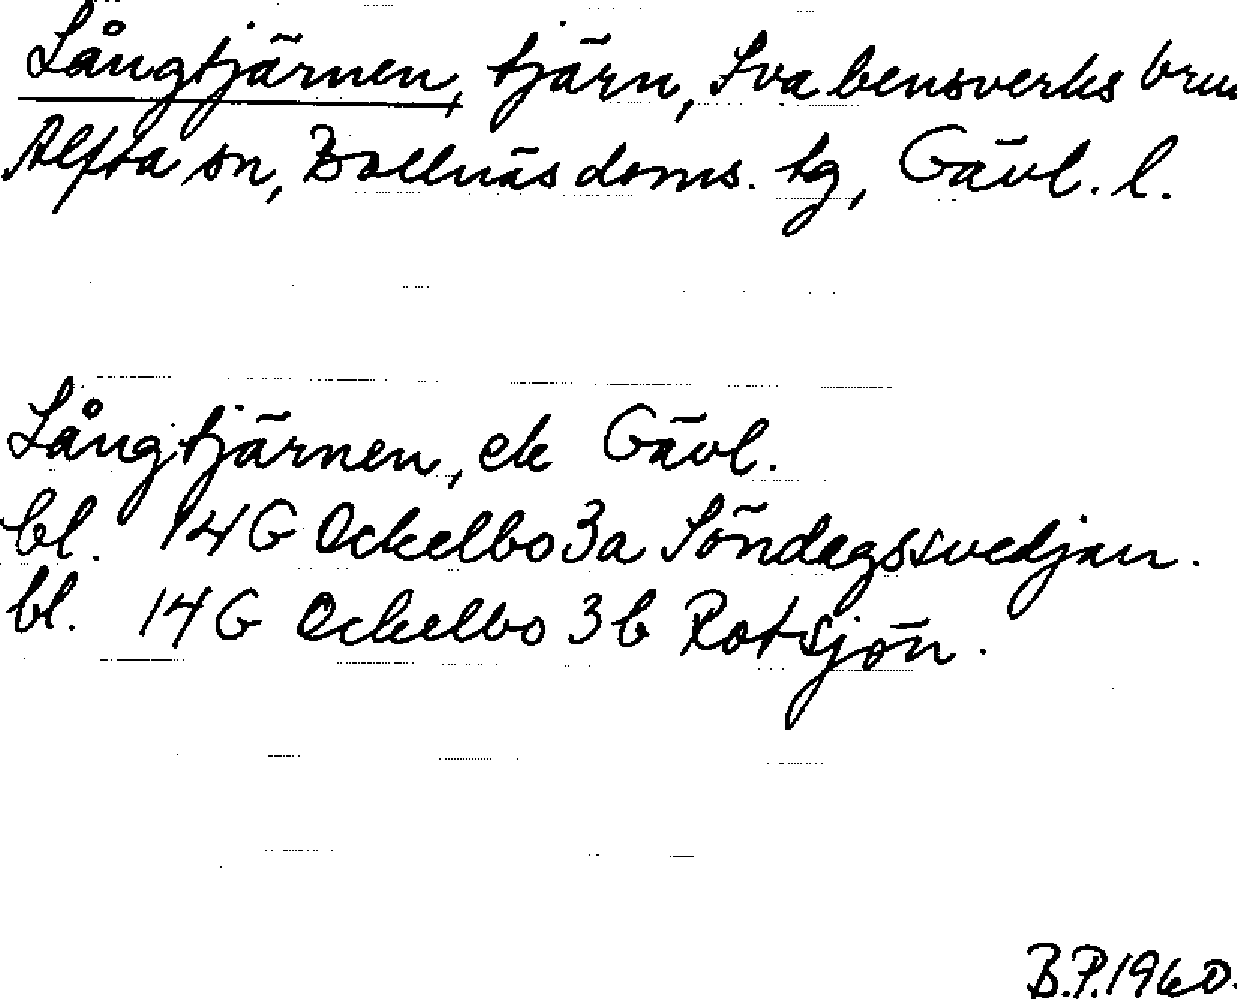 Långtjärnen, tjärn, Svabensverks bru
Alfta sn, Bollnäs doms. tg, Gävl. l.
Långtjärnen, ek Gävl.
bl. 14G Ockelbo 3a Söndagssvedjan.
bl. 14G Ockelbo 3b Rotsjön.
B.P. 1960.